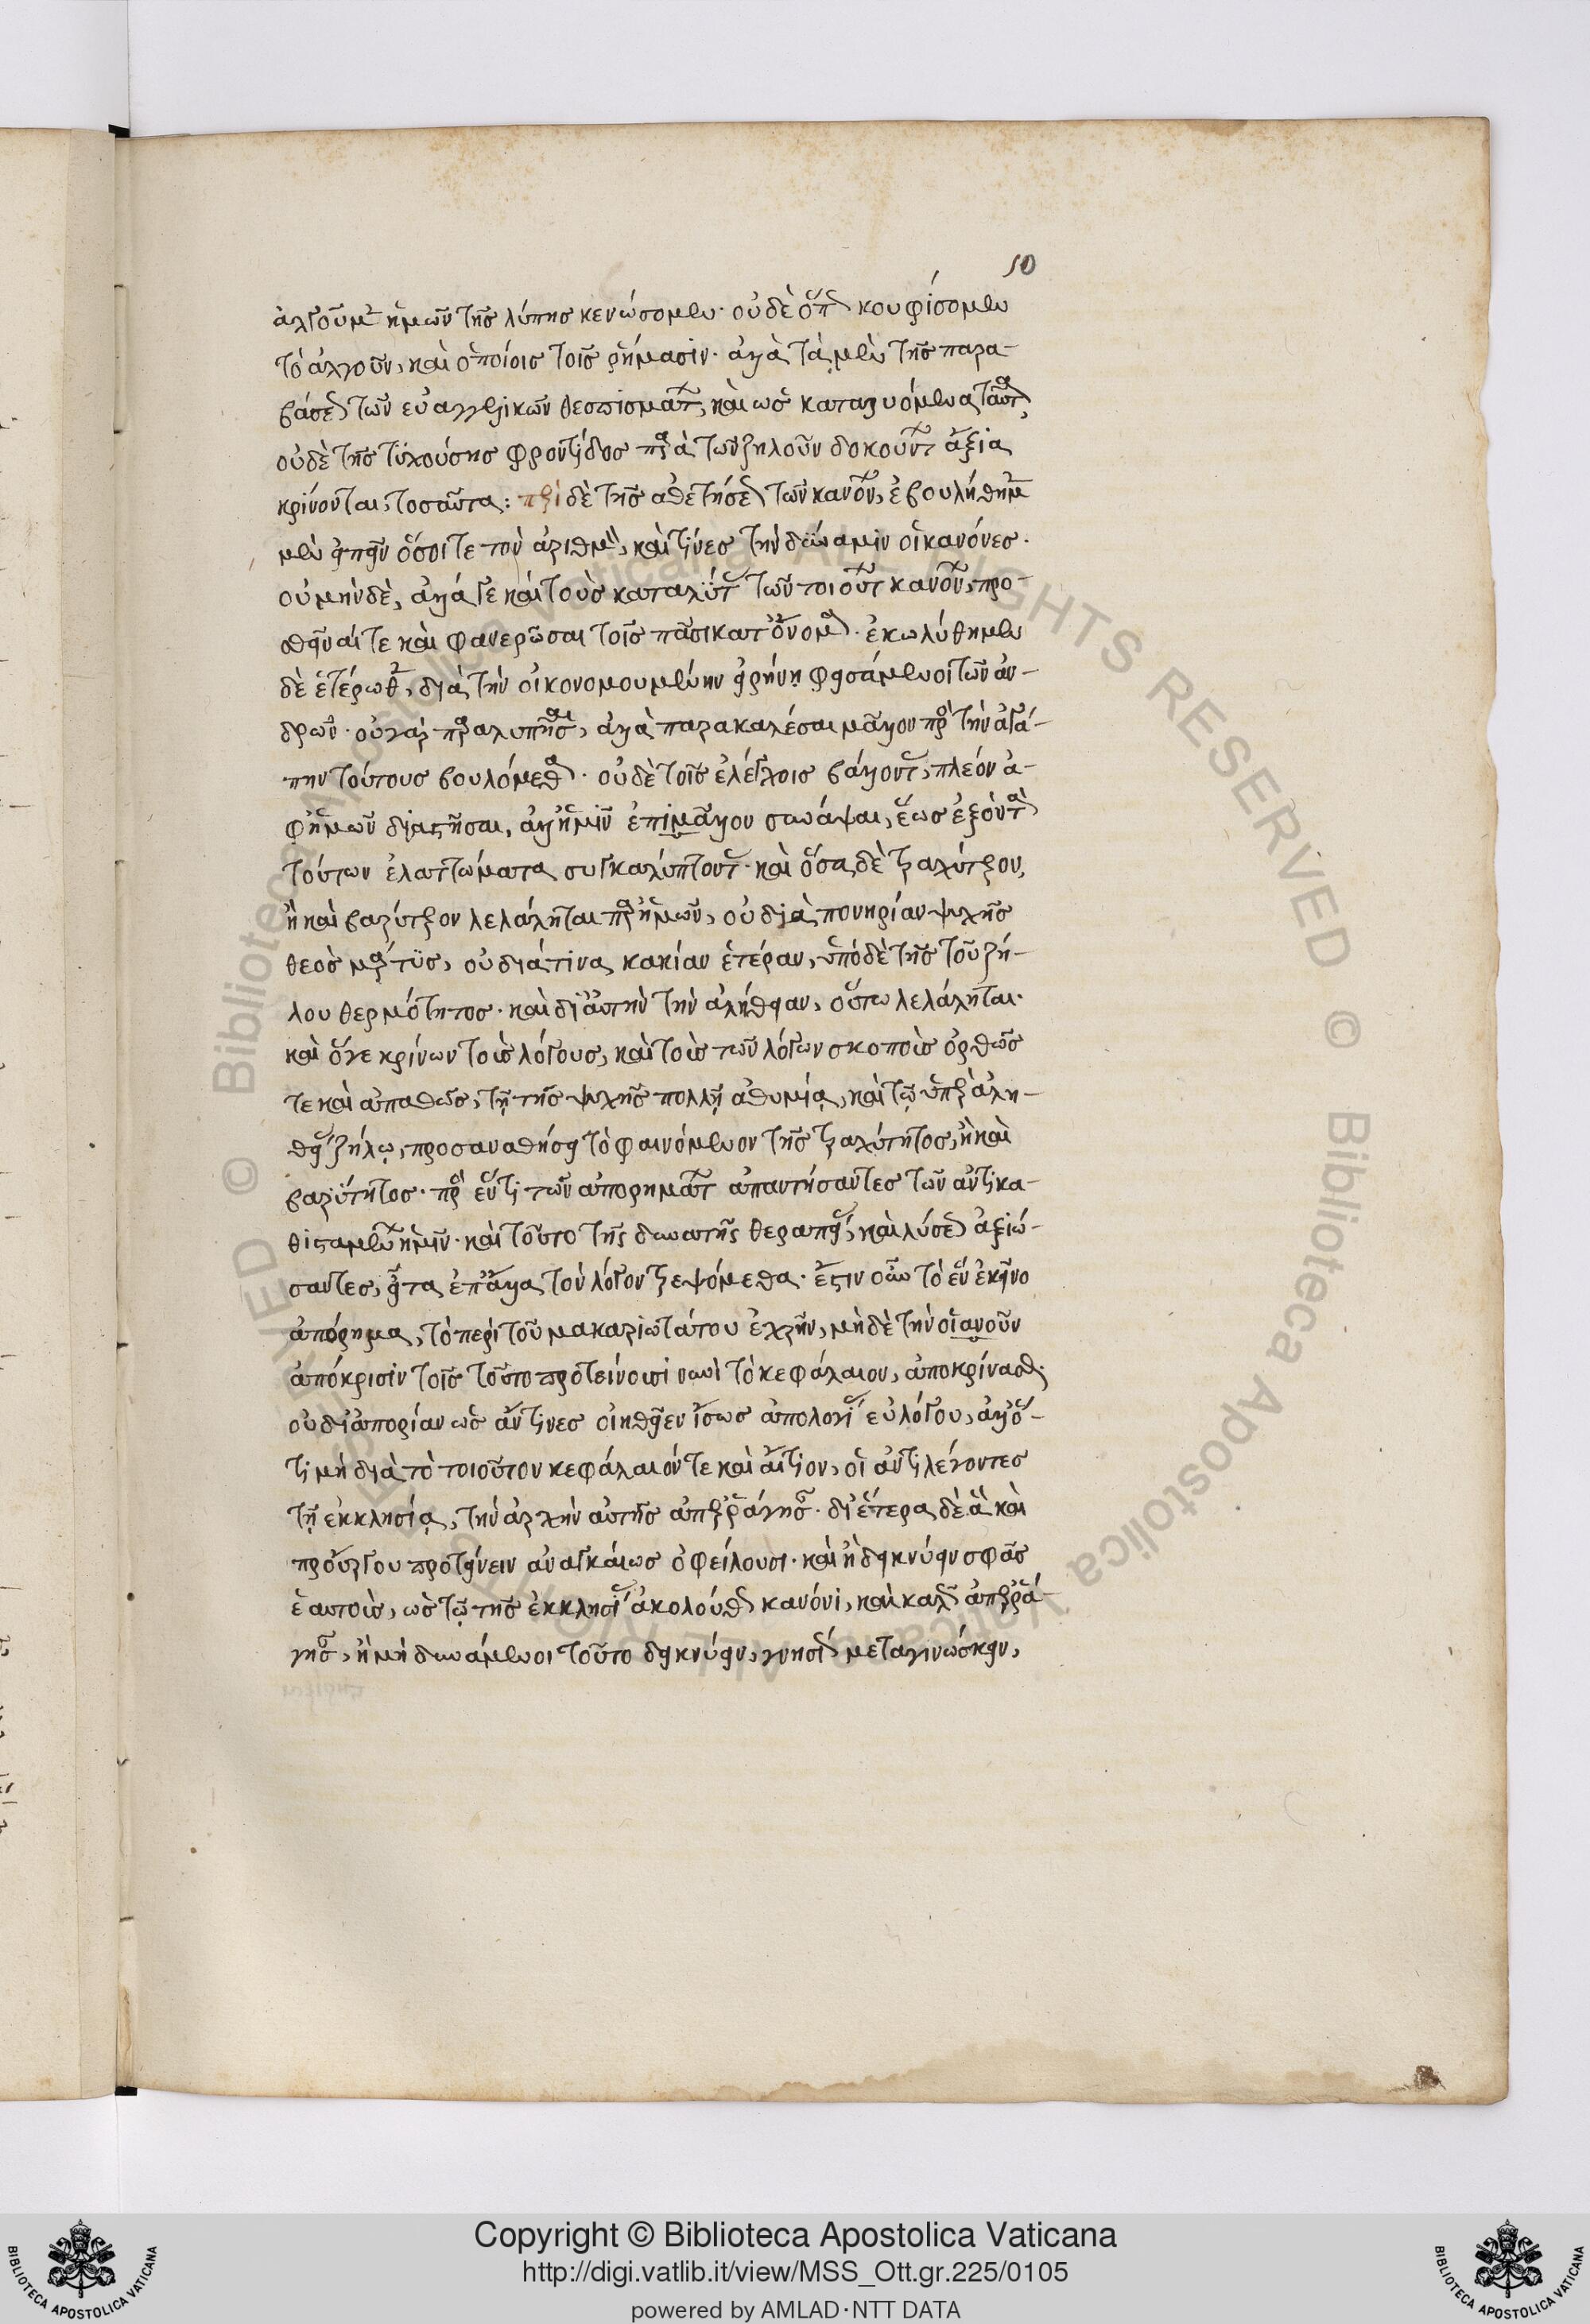 50
ἀλγοῦμεν ἡμῶν τῆς λύπης κενώσομεν· οὐδὲ ὅπως κουφίσομεν
τὸ ἀλγοῦν, καὶ ὁποίοις τοῖς ῥήμασιν· ἀλλὰ τὰ μὲν τῆς παρα-
βάσεως τῶν εὐαγγελικῶν θεσπισμάτων, καὶ ὡς καταλυόμενα ταῦτα,
οὐδὲ τῆς τυχούσης φροντίδος παρὰ τῶν ζηλοῦν δοκούντων ἄξια
κρίνονται, τοσαῦτα: περὶ δὲ τῆς ἀθετήσεως τῶν κανόνων, ἐβουλήθημεν
μὲν εἰπεῖν ὅσοι τε τὸν ἀριθμὸν, καὶ τίνες τὴν δύναμιν οἱ κανόνες·
οὐ μὴν δὲ, ἀλλά γε καὶ τοὺς καταλύτας τῶν τοιούτων κανόνων, προ-
θεῖναί τε καὶ φανερῶσαι τοῖς πᾶσι κατ' ὄνομα· ἐκωλύθημεν
δὲ ἑτέρωθεν, διὰ τὴν οἰκονομουμένην εἰρήνην φεισάμενοι τῶν ἀν-
δρῶν· οὐ γὰρ παραλυπῆσαι, ἀλλὰ παρακαλέσαι μᾶλλον πρὸς τὴν ἀγά-
πην τούτους βουλόμεθα· οὐδὲ τοῖς ἐλέγχοις βάλλοντες, πλέον ἀ-
φ' ἡμῶν διαστῆσαι, ἀλλ' ἡμῖν ἐπιμᾶλλον συνάψαι, ἕως ἐξὸν τὰ
τούτων ἐλαττώματα συγκαλύπτοντες· καὶ ὅσα δὲ τραχύτερον,
ἢ καὶ βαρύτερον λελάληται παρ' ἡμῶν, οὐ διὰ πονηρίαν ψυχῆς
θεὸς μάρτυς, οὐ διά τινα κακίαν ἑτέραν, ὑπὸ δὲ τῆς τοῦ ζή-
λου θερμότητος· καὶ δι' αὐτὴν τὴν ἀλήθειαν, οὕτω λελάληται·
καὶ ὅγε κρίνων τοὺς λόγους, καὶ τοὺς τῶν λόγων σκοποὺς ὀρθῶς
τε καὶ ἀπαθῶς, τῇ τῆς ψυχῆς πολλῇ ἀθυμίᾳ, καὶ τῷ ὑπὲρ ἀλη-
θείας ζήλῳ, προσαναθήσει τὸ φαινόμενον τῆς τραχύτητος, ἢ καὶ
βαρύτητος· πρὸς ἕν τι τῶν ἀπορημάτων ἀπαντήσαντες τῶν ἀντικα-
θισταμένων ἡμῖν· καὶ τοῦτο τῆς δυνατῆς θεραπείας, καὶ λύσεως ἀξιώ-
σαντες, εἶτα ἐπ' ἄλλα τὸν λόγον τρεψόμεθα· ἔστιν οὖν τὸ ἓν ἐκεῖνο
ἀπόρημα, τὸ περὶ τοῦ μακαριωτάτου ἐχρῆν, μηδὲ τὴν οἱανοῦν
ἀπόκρισιν τοῖς τοῦτο προτείνουσι νυνὶ τὸ κεφάλαιον, ἀποκρίνασθαι·
οὐ δι' ἀπορίαν ὡς ἄν τινες οἰηθεῖεν ἴσως ἀπολογίας εὐλόγου, ἀλλ' ὅ-
τι μὴ διὰ τὸ τοιοῦτον κεφάλαιόν τε καὶ αἴτιον, οἱ ἀντιλέγοντες
τῇ ἐκκλησίᾳ, τὴν ἀρχὴν αὐτῆς ἀπερράγησαν· δι' ἕτερα δὲ ἃ καὶ
προὔργου προτείνειν ἀναγκαίως ὀφείλουσι· καὶ ἢ δεικνύειν σφᾶς
ἑαυτοὺς, ὡς τῷ τῆς ἐκκλησίας ἀκολούθως κανόνι, καὶ καλῶς ἀπερρά-
γησαν, ἢ μὴ δυνάμενοι τοῦτο δεικνύειν, γνησίως μεταγινώσκειν,
Copyright © Biblioteca Apostolica Vaticana
http://digi.vatlib.it/view/MSS_Ott.gr.225/0105
powered by AMLAD·NTT DATA